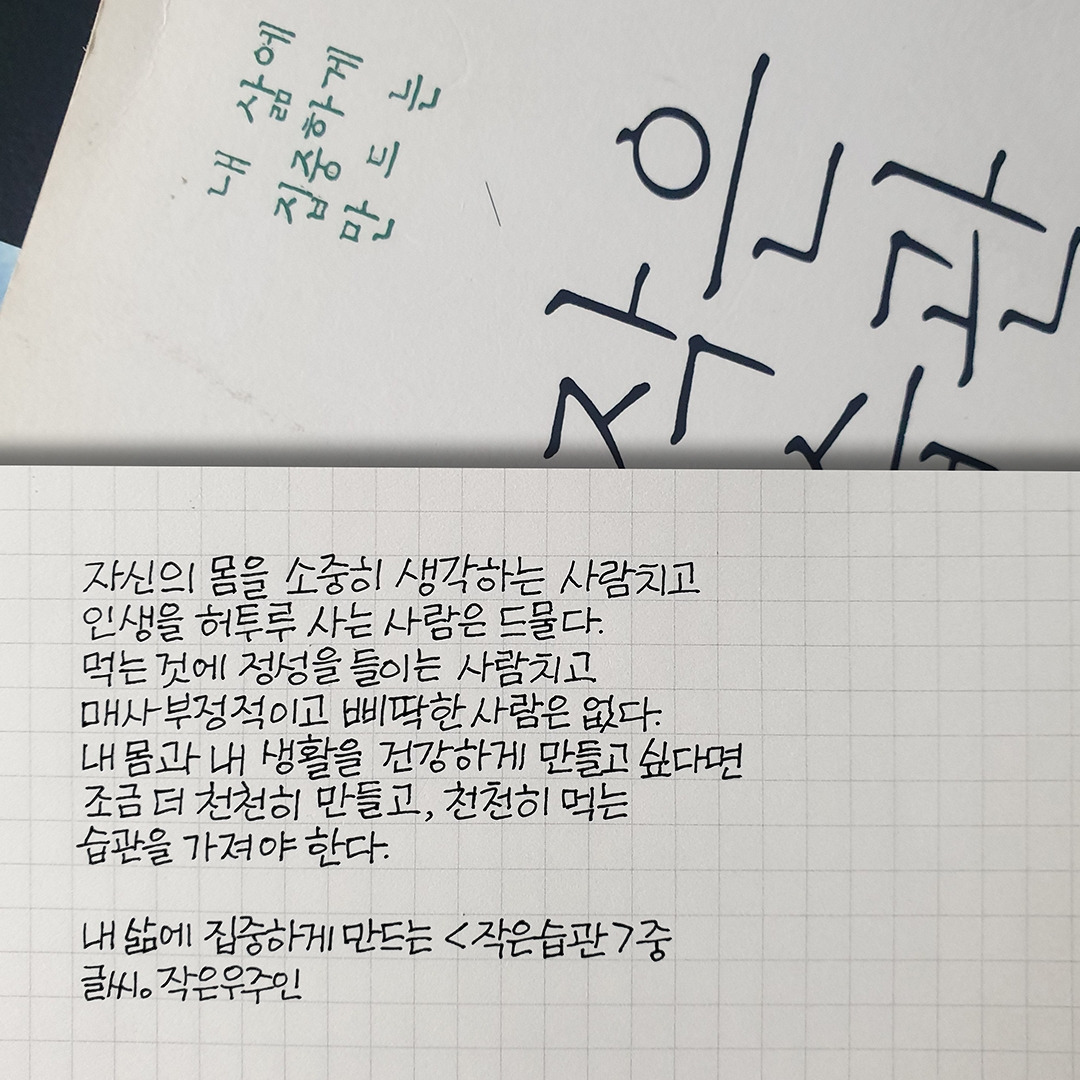 내 삶에
집중하게
만드는
작은
습관
자신의 몸을 소중히 생각하는 사람치고
인생을 허투루 사는 사람은 드물다.
먹는 것에 정성을 들이는 사람치고
매사 부정적이고 삐딱한 사람은 없다.
내 몸과 내 생활을 건강하게 만들고 싶다면
조금 더 천천히 만들고, 천천히 먹는
습관을 가져야 한다.
내 삶에 집중하게 만드는 <작은습관> 중
글씨。작은우주인